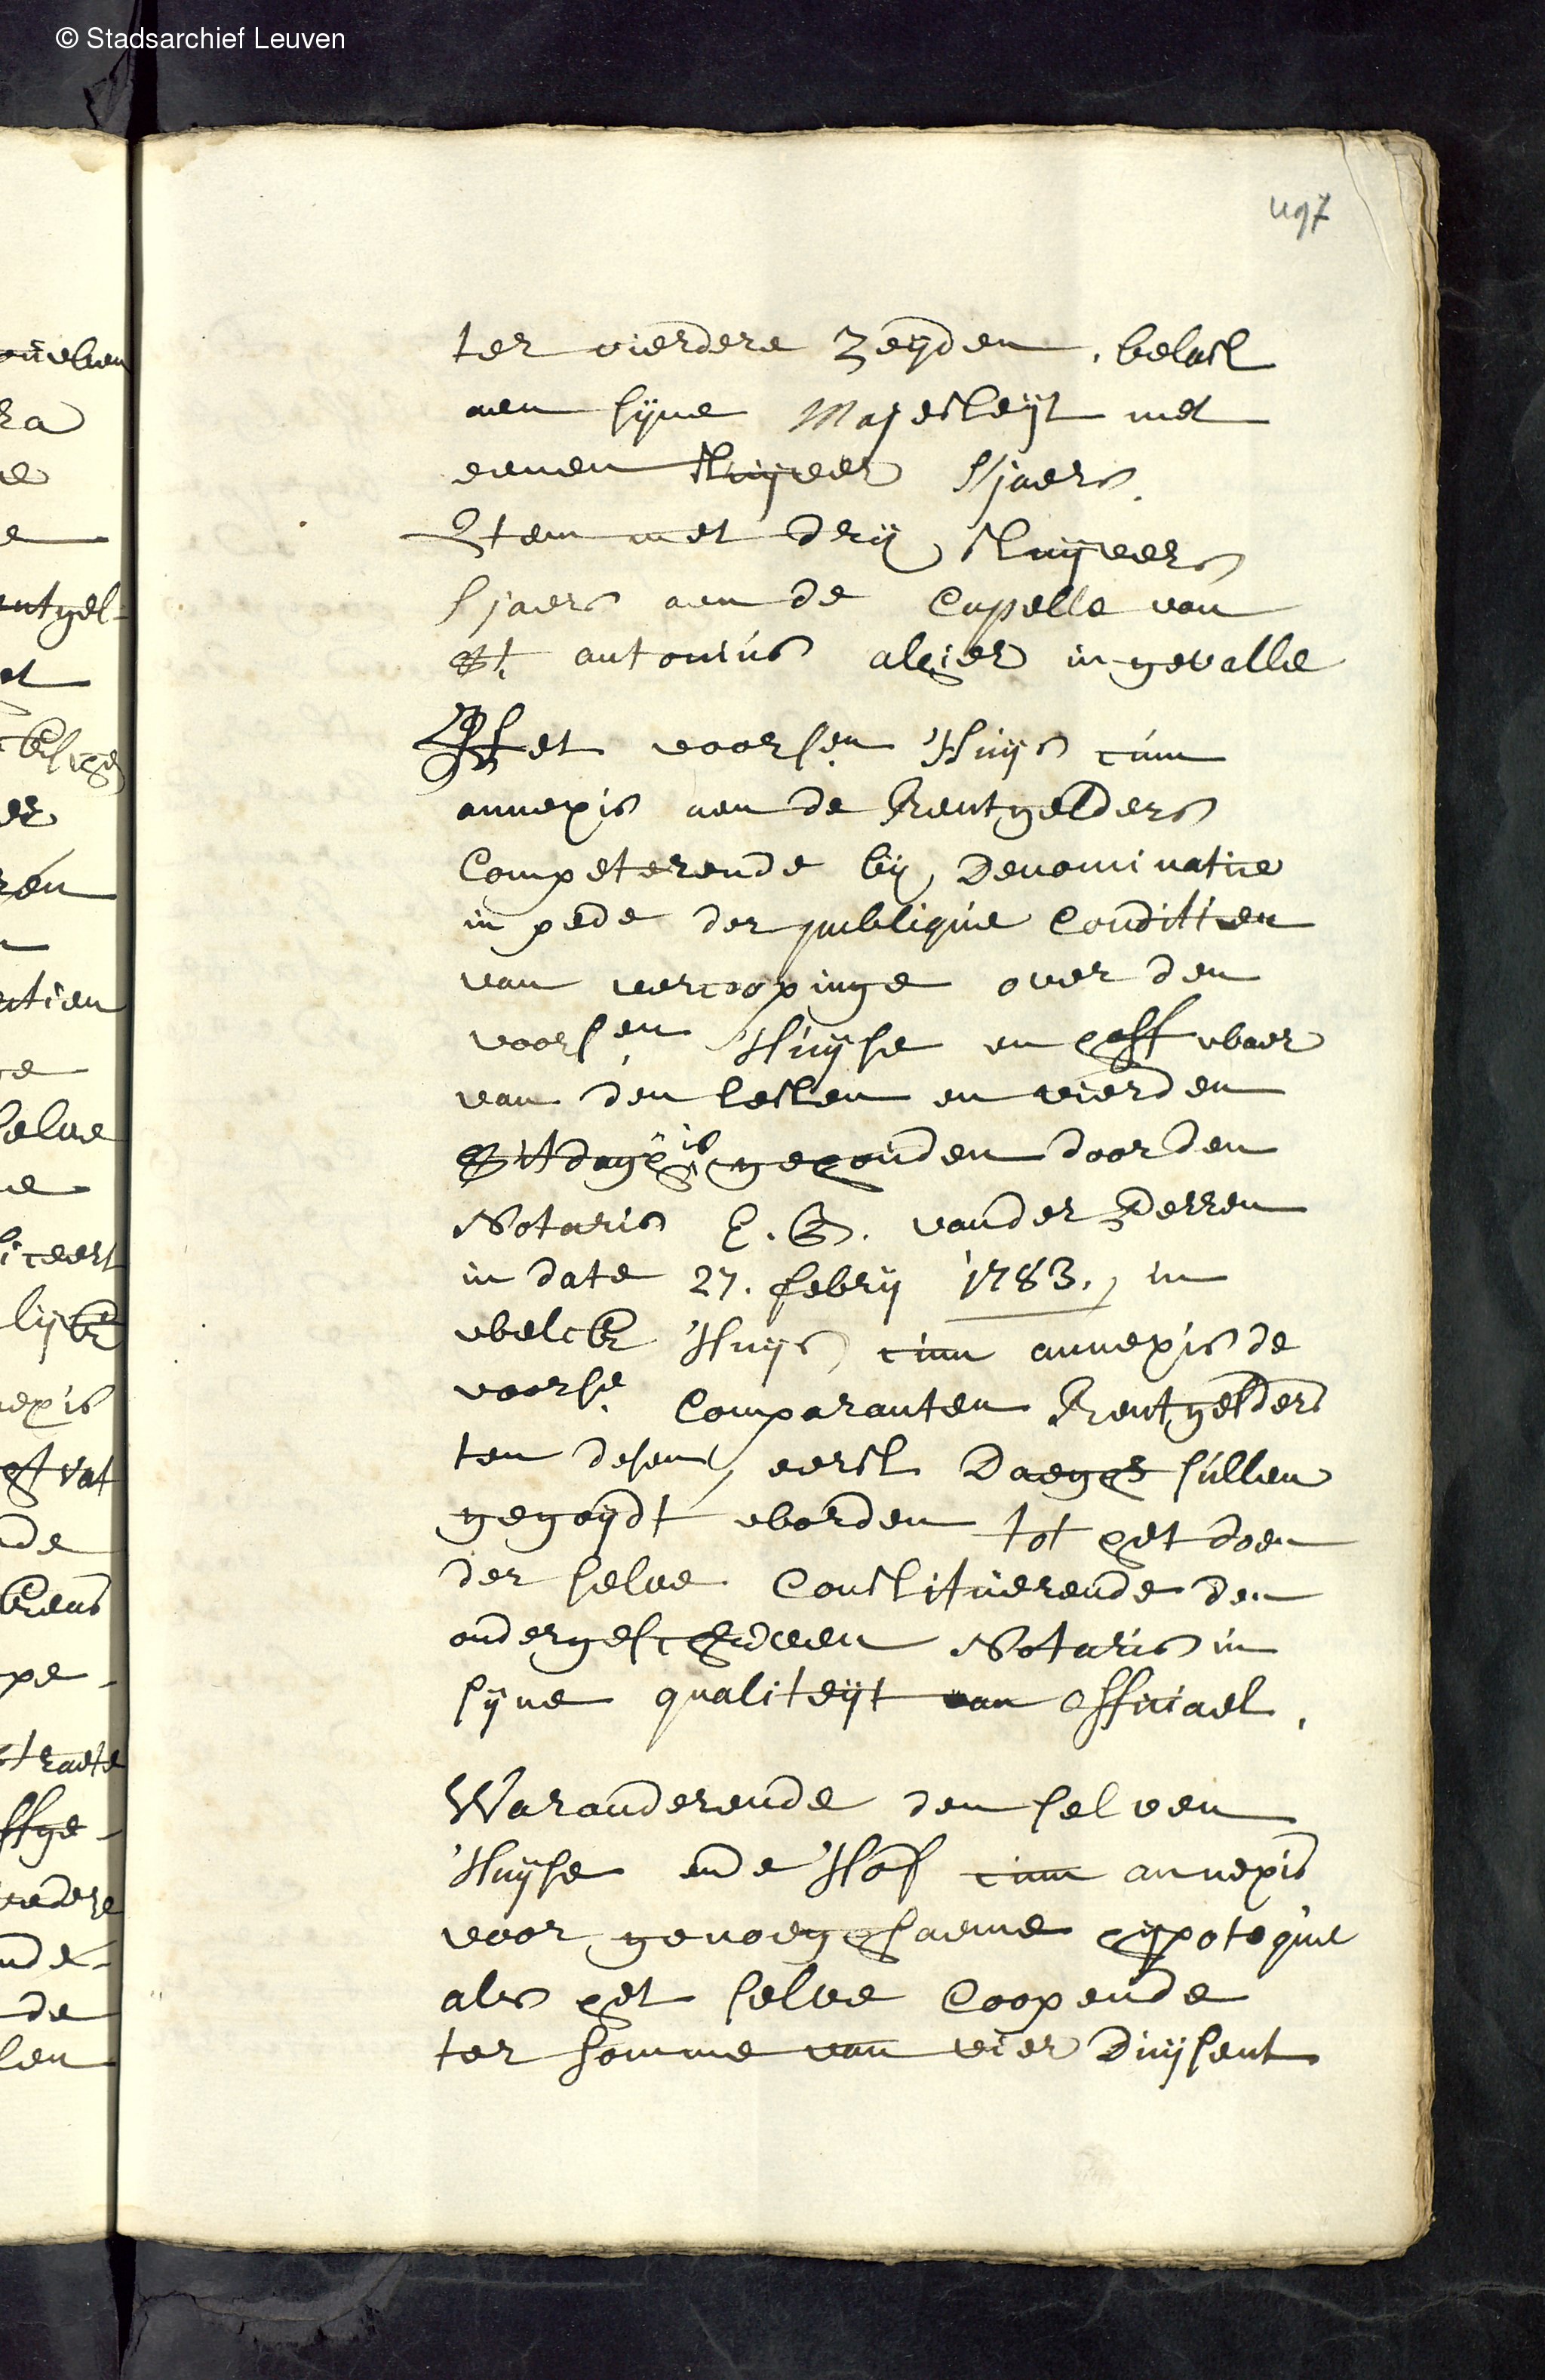 © Stadsarchief Leuven
497
ter vierdere zeijden, belast
aen sijne Majesteijt met
eenen stuijver sjaers.
Item met drij stuijvers
sjaers aen de Capelle van
St antonius alhier in gevalle
Het voorsen Huijs cum
annexis aen de Rentgelders
Competerende bij Denominatie
in pede der publique Conditien
van vercoopinge over den
voorsen Huijse en hoff vber
van den lesten en vierden
Sitdagh is gehouden door den
Notaris vander
in date 27. febrij 1783., in
welck Huijs cum annexis de
voorse. Comparanten Rentgelders
ten desen, eerst Daeghs sullen
gegoijdt worden tot het doen
der selve Constituerende den
ondergeschreven Notaris in
sijne qualiteijt van officiael.
Waranderende den selven
Huijse ende Hof cum annexis
voor genoeghsaeme hijpoteque
als het selve Coopende
ter somme van vier Duijsent